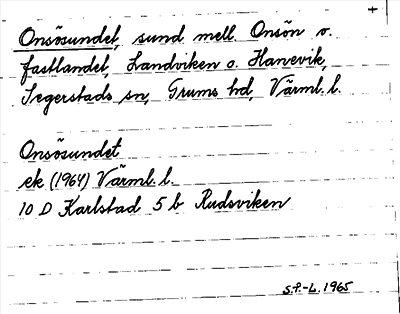 Onsösundet, sund mell. Onsön o.
fastlandet, Landviken o. Hanevik,
Segerstads sn, Grums hd, Värml. l.
Onsösundet
ek (1964) Värml. l.
10 D Karlstad 5 b Rudsviken
S.F.-L. 1965